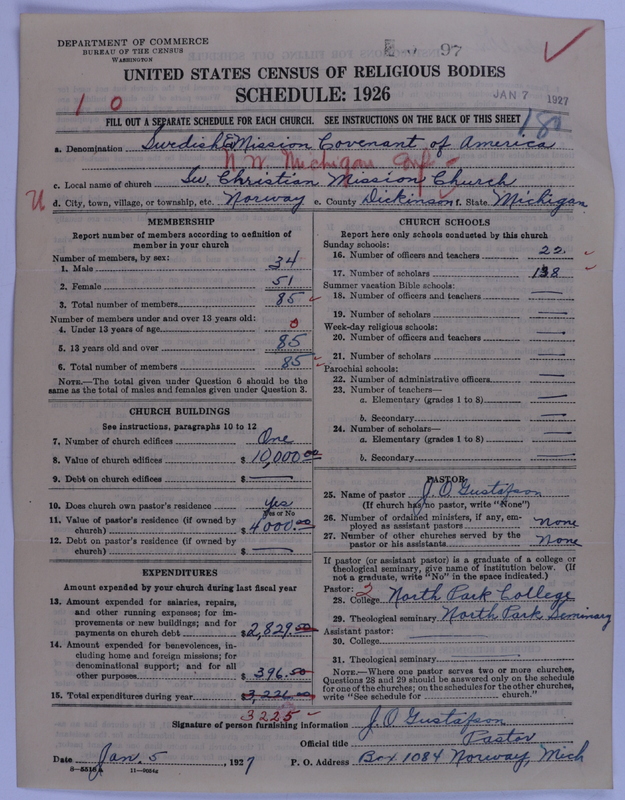 DEPARTMENT OF COMMERCE
BUREAU OF THE CENSUS
WASHINGTON
97
UNITED STATES CENSUS OF RELIGIOUS BODIES
SCHEDULE: 1926
JAN 7 1927
1 0
FILL OUT A SEPARATE SCHEDULE FOR EACH CHURCH. SEE INSTRUCTIONS ON THE BACK OF THIS SHEET
a. Denomination Swedish E Mission Covenant of America
N.W. Michigan Conf.
c. Local name of church Sw. Christian Mission Church
U d. City, town, village, or township, etc. Norway e. County Dickinson f. State Michigan
MEMBERSHIP
Report number of members according to definition of
member in your church
Number of members, by sex:
1. Male 34
2. Female 51
3. Total number of members 85
Number of members under and over 13 years old:
4. Under 13 years of age 0
5. 13 years old and over 85
6. Total number of members 85
NOTE.—The total given under Question 6 should be the
same as the total of males and females given under Question 3.
CHURCH BUILDINGS
See instructions, paragraphs 10 to 12
7. Number of church edifices One
8. Value of church edifices $ 10,000.00
9. Debt on church edifices $ —
10. Does church own pastor's residence Yes
Yes or No
11. Value of pastor's residence (if owned by
church) $ 4000.00
12. Debt on pastor's residence (if owned by
church) $ —
EXPENDITURES
Amount expended by your church during last fiscal year
13. Amount expended for salaries, repairs,
and other running expenses; for im-
provements or new buildings; and for
payments on church debt $ 2,829.50
14. Amount expended for benevolences, in-
cluding home and foreign missions; for
denominational support; and for all
other purposes $ 396.50
15. Total expenditures during year $ 3,226.00
3225
CHURCH SCHOOLS
Report here only schools conducted by this church
Sunday schools:
16. Number of officers and teachers 22.
17. Number of scholars 138
Summer vacation Bible schools:
18. Number of officers and teachers —
19. Number of scholars —
Week-day religious schools:
20. Number of officers and teachers —
21. Number of scholars —
Parochial schools:
22. Number of administrative officers —
23. Number of teachers—
a. Elementary (grades 1 to 8) —
b. Secondary —
24. Number of scholars—
a. Elementary (grades 1 to 8) —
b. Secondary —
PASTOR
25. Name of pastor J. O. Gustafson
(If church has no pastor, write "None")
26. Number of ordained ministers, if any, em-
ployed as assistant pastors none
27. Number of other churches served by the
pastor or his assistants None
If pastor (or assistant pastor) is a graduate of a college or
theological seminary, give name of institution below. (If
not a graduate, write "No" in the space indicated.)
Pastor: 3
28. College North Park College
29. Theological seminary North Park Seminary
Assistant pastor:
30. College —
31. Theological seminary —
NOTE.—Where one pastor serves two or more churches,
Questions 28 and 29 should be answered only on the schedule
for one of the churches; on the schedules for the other churches,
write "See schedule for church."
Signature of person furnishing information J. O Gustafson
Official title Pastor
Date Jan. 5, 1927 P. O. Address Box 1084 Norway, Mich
8-5518A 11-9054a